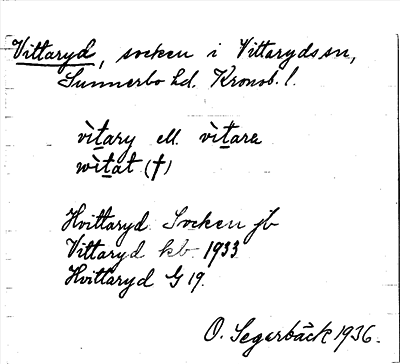 Vittaryd, socken i Vittaryds sn,
Sunnerbo hd. Kronob. l.
vìtary ell. vìtare
wìtat (†)
Hvittaryd Socken jb
Vittaryd kb 1933
Hvittaryd G 19.
O. Segerbäck 1936.